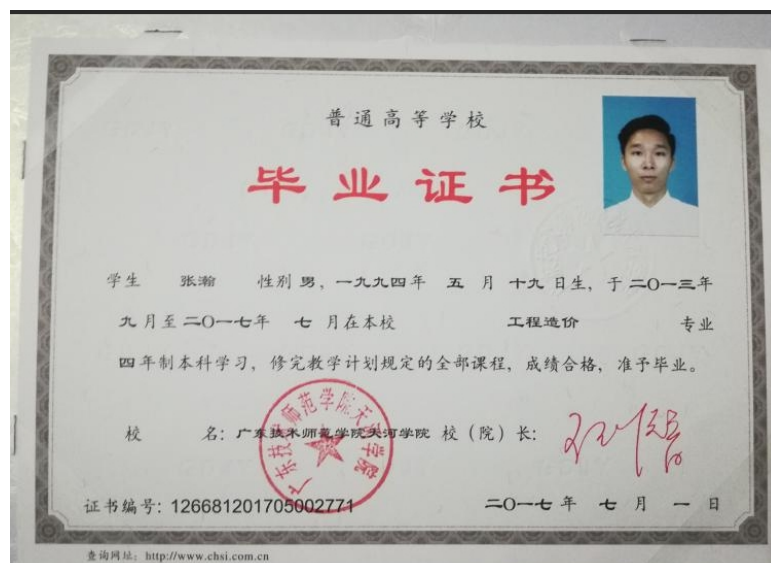 普通高等学校
毕业证书
学生 张瀚 性别 男，一九九四年 五 月 十九 日生，于 二〇一三年
九 月至 二〇一七年 七 月在本校 工程造价 专业
四 年制本科学习，修完教学计划规定的全部课程，成绩合格，准予毕业。
校 名：广东技术师范学院天河学院 校（院）长：
广东技术师范学院天河学院
证书编号：126681201705002771 二〇一七 年 七 月 一 日
查询网址：http://www.chsi.com.cn